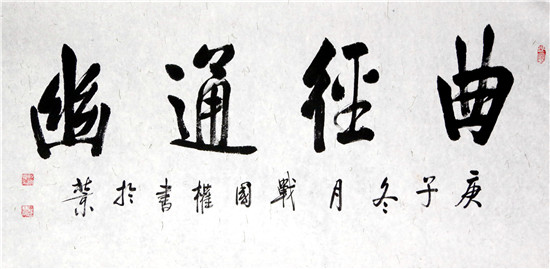 曲徑通幽
庚子冬月戰國權書於